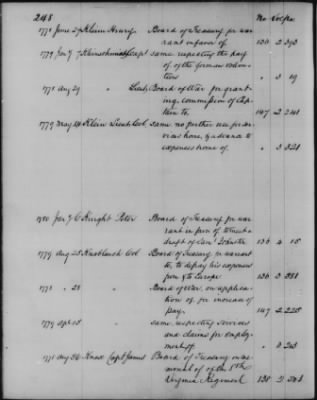 248
No Vol Pa.
1778 June 27 Klein Henry, Board of Treasury for war
rant in favor of 136 2 393
1779 Jan 7 Kleinschmidt Capt same respecting the pay
of, of the German volun
teers " 3 19
1778 Aug 29 " Lieut Board of War for grant
ing commission of Cap
tain to, 147 2 241
1779 May 14 Klein Lieut Col, same no further use for ser
vices here, & advance to
expenses home of. " 3 321
1780 Jan 7 Knight Peter Board of Treasury for war
rant in favor of to meet a
draft of Gen 136 4 15
1779 Aug 25 Knoblauch Col Board of Treasury for warrant
to, to defray his expenses
from & to Europe 136 3 551
1778 " 28 " Board of War, on applica
tion of for increase of
pay. 147 2 225
1779 Sept 15 " same respecting services
and claims for employ
ment of " 3 203
1778 Aug Knox Capt James Board of Treasury on me
morial of of the 8th
Virginia Regiment 136 2